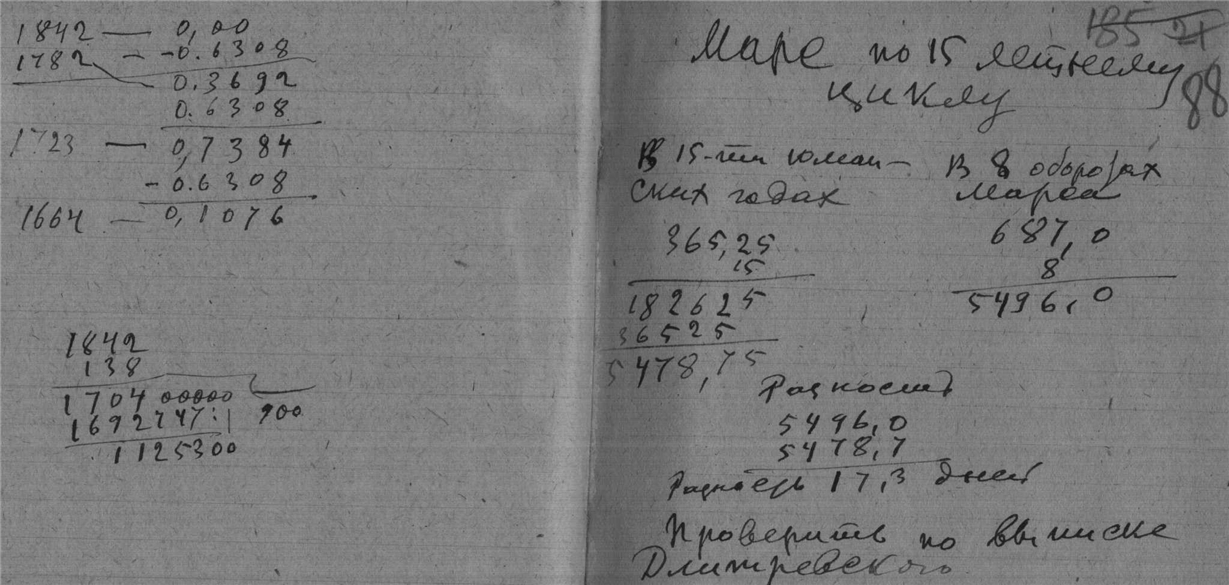 1842 — 0,00
1782 — -0.6308
0.3692
0.6308
1723 — 0,7384
-0.6308
1664 — 0,1076
1842
138
1704 00000
1692747:| 900
1125300
185 21
88
Марс по 15 летнему
циклу
В 15-ти юлиан-
ских годах
365,25
15
182625
36525
5478,75
В 8 оборотах
Марса
687,0
8
5496,0
Разность
5496,0
5478,7
Разность 17,3 дней
Проверить по выписке
Дмитревского